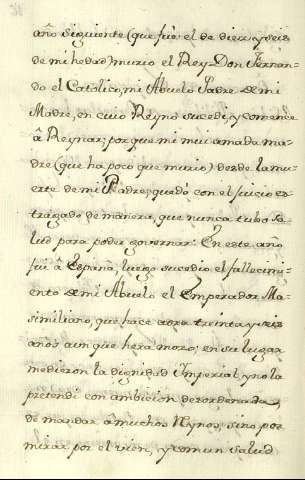 año siguiente (que fué el de diez y seis
de mi hedad) murio el Rey Don Fernan-
do el Catolico, mi Abuelo Padre de mi
Madre, en cuio Reyno sucedi, y comence
â Reynar; por que mi muy amada ma-
dre (que ha poco que murio) desde la mu-
erte de mi Padre, quedó con el juicio es-
tragado de manera, que nunca tubo sa-
lud para poder governar: En este año
fui â España, luego sucedio el fallecimi-
ento de mi Abuelo el Emperador Ma-
similiano, que hace aora treinta y seis
años aun que hera mozo; en su lugar
me dieron la dignidad Imperial, y no la
pretendi con ambicion desordenada,
de mandar â muchos Rynos, sino por
mirar por el vien, y comun salud